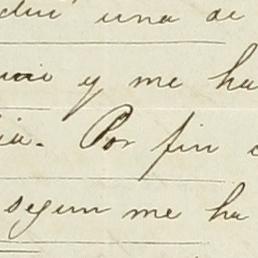 una de
y me ha
ia. Por fin
segun me ha